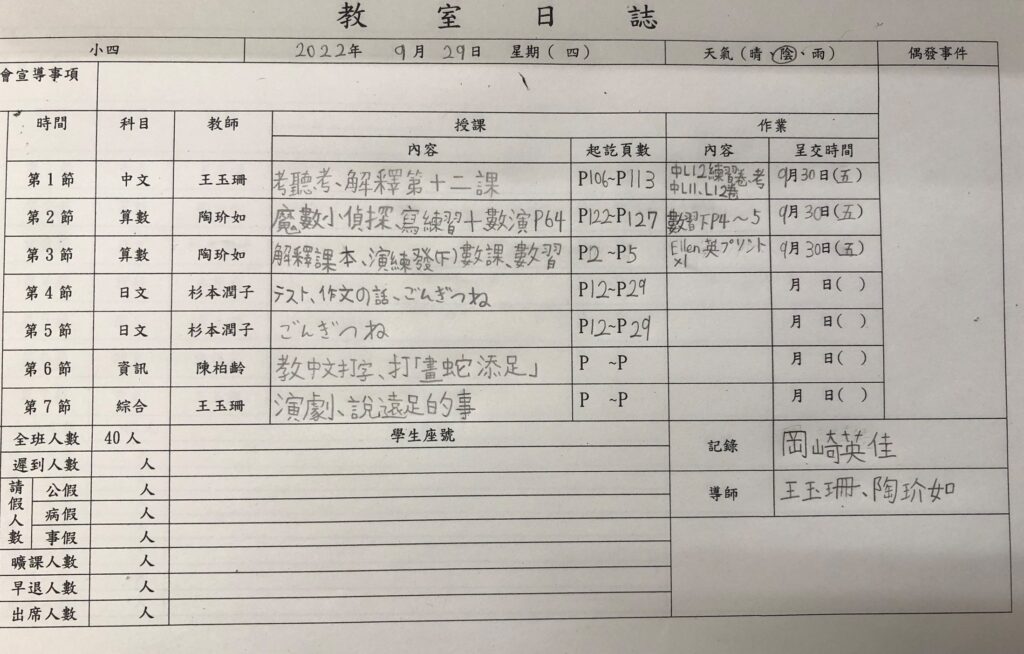 教室日誌
小四 2022年 9月 29日 星期(四) 天氣(晴、陰、雨) 偶發事件
會宣導事項
時間 科目 教師 授課 作業
內容 起訖頁數 內容 呈交時間
第1節 中文 王玉珊 考聽考、解釋第十二課 P106~P113 中L12練習卷、考 9月30日(五)
中L11、L12卷
第2節 算數 陶玠如 魔數小偵探、寫練習十數演P64 P122~P127 數習下P4～5 9月30日(五)
第3節 算數 陶玠如 解釋課本、演練發(下)數課、數習 P2~P5 Ellen英プリント 9月30日(五)
×1
第4節 日文 杉本潤子 テスト、作文の話、ごんぎつね P12~P29 月 日( )
第5節 日文 杉本潤子 ごんぎつね P12~P29 月 日( )
第6節 資訊 陳柏齡 教中文打字、打「畫蛇添足」 P ~P 月 日( )
第7節 綜合 王玉珊 演劇小說遠足的事 P ~P 月 日( )
全班人數 40人 學生座號 記錄 岡崎英佳
遲到人數 人
請假人數 公假 人 導師 王玉珊、陶玠如
病假 人
事假 人
曠課人數 人
早退人數 人
出席人數 人